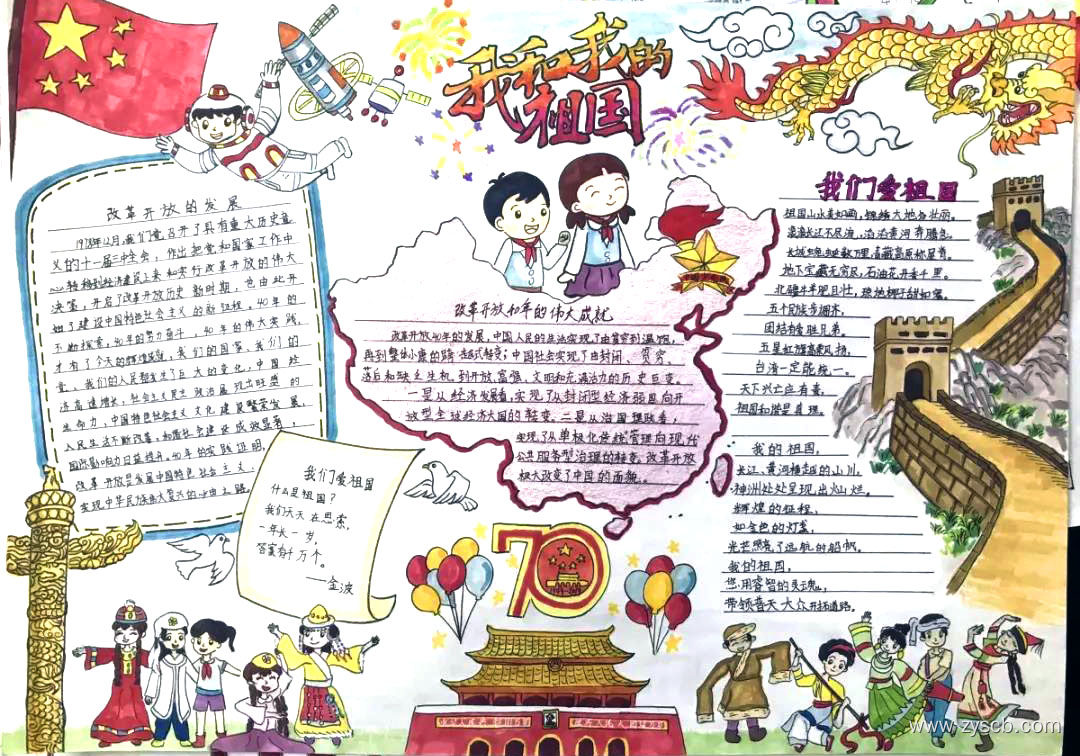 我和我的
祖国
改革开放的发展
1978年12月,我们党召开了具有重大历史意
义的十一届三中全会,作出把党和国家工作中
心转移到经济建设上来和实行改革开放的伟大
决策,开启了改革开放历史新时期,也由此开
始了建设中国特色社会主义的新征程。40年的
不断探索,40年的努力奋斗,40年的伟大实践,
才有了今天的辉煌成就,我们的国家、我们的
党、我们的人民都发生了巨大的变化,中国经
济高速增长,社会主义民主政治展现出旺盛的
生命力,中国特色社会主义文化建设繁荣发展,
人民生活不断改善,和谐社会建设成效显著,
国际影响力日益提升。40年的实践证明,
改革开放是发展中国特色社会主义、
实现中华民族伟大复兴的必由之路。
我们爱祖国
什么是祖国?
我们天天在思索,
一年长一岁,
答案有千万个。
——金波
改革开放40年的伟大成就
改革开放40年的发展,中国人民的生活实现了由贫穷到温饱,
再到整体小康的跨越式转变;中国社会实现了由封闭、贫穷、
落后和缺乏生机,到开放、富强、文明和充满活力的历史巨变。
一是从经济发展看,实现了从封闭型经济弱国向开
放型全球经济大国的转变。二是从治国理政看,
实现了从单极化传统管理向现代
公共服务型治理的转变。改革开放
极大改变了中国的面貌。
70
我们爱祖国
祖国山水美如画,锦绣大地多壮丽。
滚滚长江不尽流,滔滔黄河奔腾急。
长城蜿蜒数万里,青藏高原极星肯。
地下宝藏无穷尽,石油花开香千里。
北疆羊羊肥且壮,琼地椰子甜如蜜。
五个民族步调本,
团结奋斗胜兄弟。
五星红旗高飘扬,
台湾一定能统一。
天下兴亡应有责,
祖国和谐是真理。
我的祖国,
长江、黄河横越的山川,
神洲处处呈现出灿烂。
辉煌的征程,
如金色的灯盏,
光芒照亮了远航的船帆。
我的祖国,
您用睿智的灵魂,
带领普天大众开拓道路。
www.zyscb.com